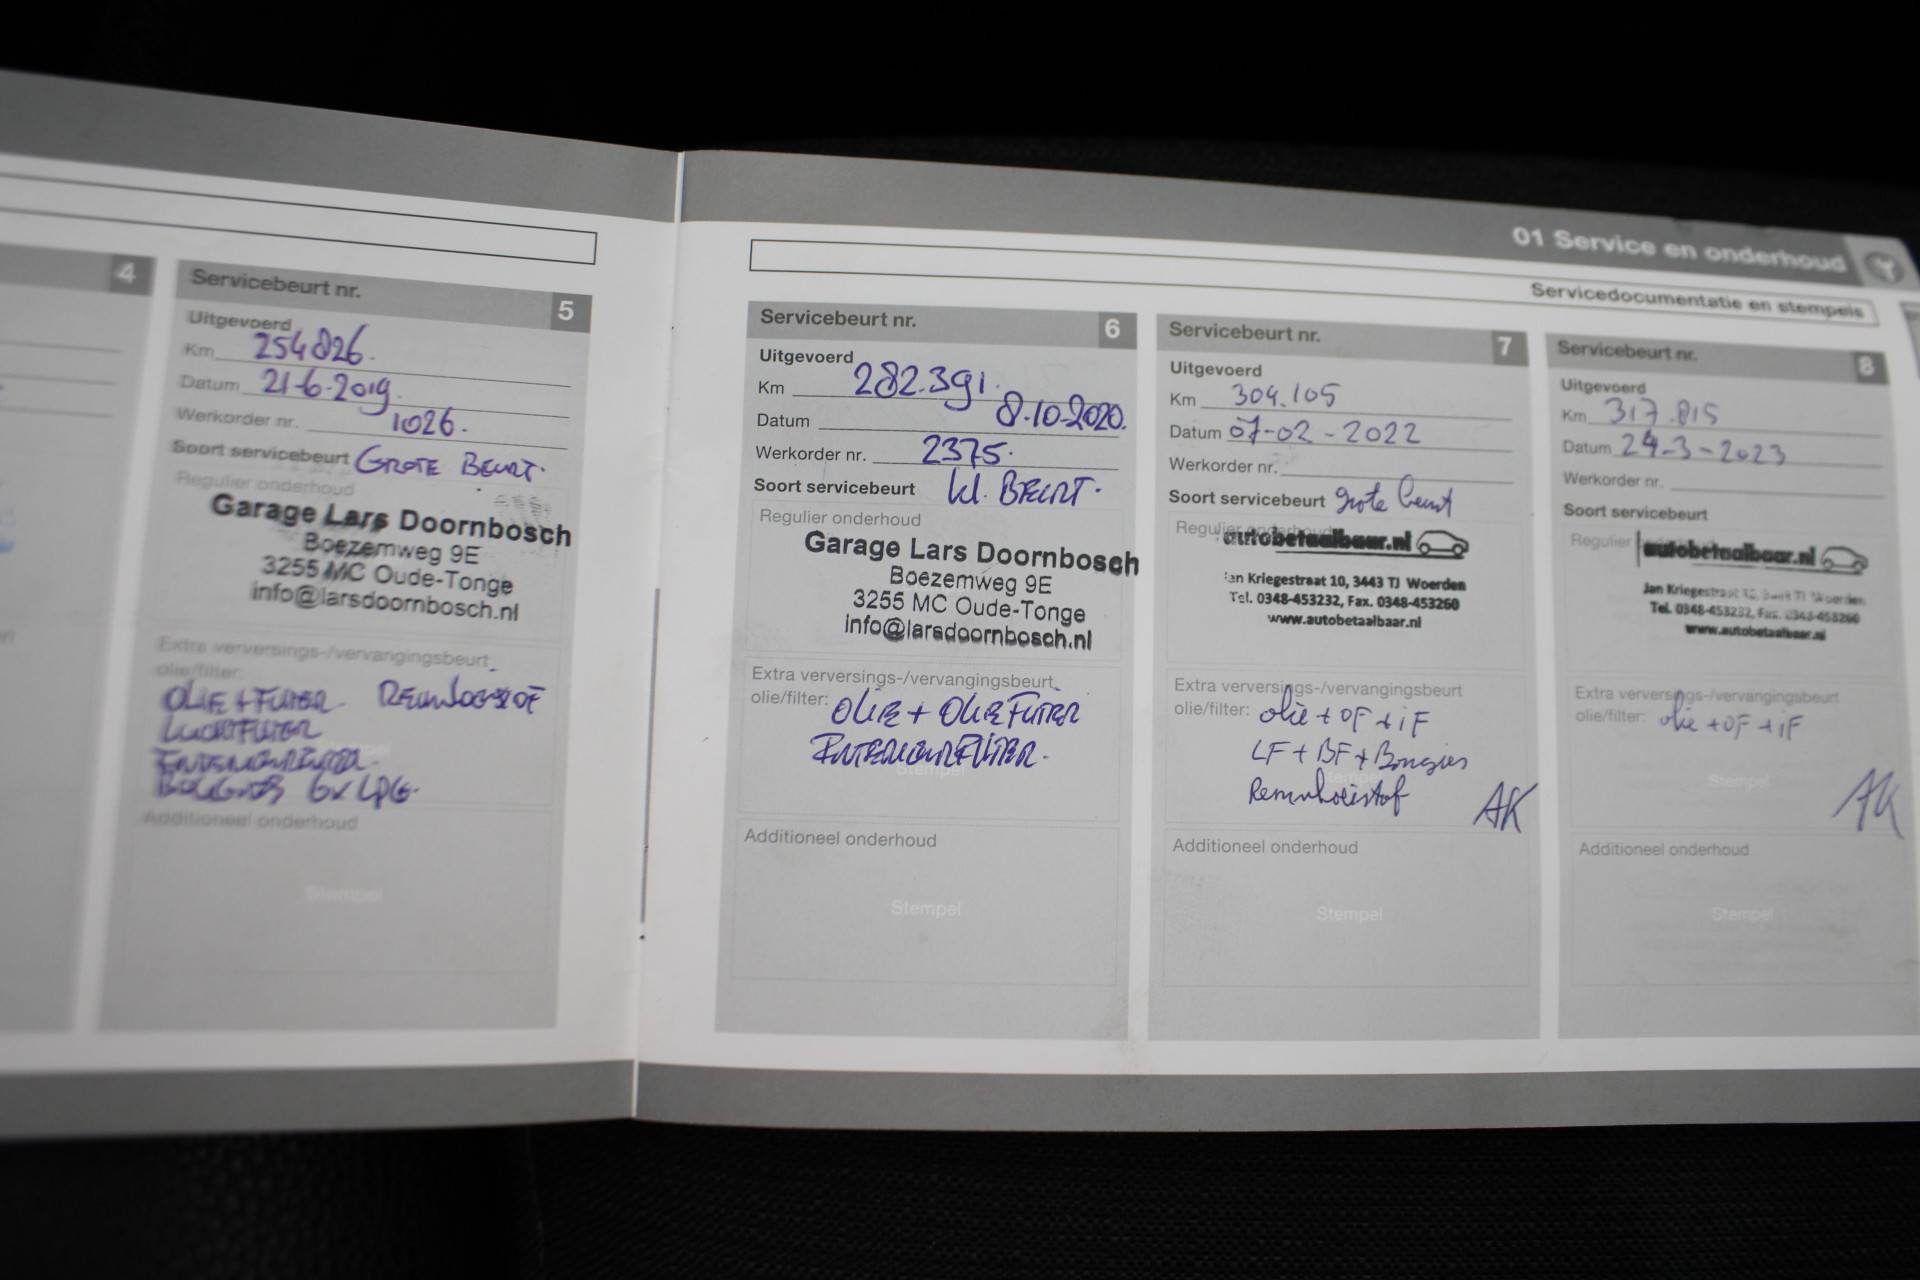 01 Service en onderhoud
Servicedocumentatie en stempels
4
Servicebeurt nr. 5
Uitgevoerd
Km 254826.
Datum 21-6-2019
Werkorder nr. 1026.
Soort servicebeurt GROTE BEURT.
Regulier onderhoud
Garage Lars Doornbosch
Boezemweg 9E
3255 MC Oude-Tonge
info@larsdoornbosch.nl
Extra verversings-/vervangingsbeurt
olie/filter:
OLIE + FILTER REMVLOEISTOF
LUCHTFILTER
INTERIEURFILTER.
BOUGIES 6x LPG.
Additioneel onderhoud
Stempel
Servicebeurt nr. 6
Uitgevoerd
Km 282.391.
Datum 8.10-2020.
Werkorder nr. 2375.
Soort servicebeurt kl. BEURT.
Regulier onderhoud
Garage Lars Doornbosch
Boezemweg 9E
3255 MC Oude-Tonge
info@larsdoornbosch.nl
Extra verversings-/vervangingsbeurt
olie/filter: OLIE + OLIEFILTER
INTERIEURFILTER.
Stempel
Additioneel onderhoud
Stempel
Servicebeurt nr. 7
Uitgevoerd
Km 304.105
Datum 07-02-2022
Werkorder nr.
Soort servicebeurt grote beurt
Regulier onderhoud
autobetaalbaar.nl
Jan Kriegestraat 10, 3443 TJ Woerden
Tel. 0348-453232, Fax. 0348-453260
www.autobetaalbaar.nl
Extra verversings-/vervangingsbeurt
olie/filter: olie + OF + iF
LF + BF + Bougies
Stempel
Remvloeistof AK
Additioneel onderhoud
Stempel
Servicebeurt nr. 8
Uitgevoerd
Km 317.815
Datum 24-3-2023
Werkorder nr.
Soort servicebeurt
Regulier
autobetaalbaar.nl
Jan Kriegestraat TJ Woerden
Tel. 0348-453232, Fax. 0348-453260
www.autobetaalbaar.nl
Extra verversings-/vervangingsbeurt
olie/filter: olie + OF + iF
Stempel
AK
Additioneel onderhoud
Stempel